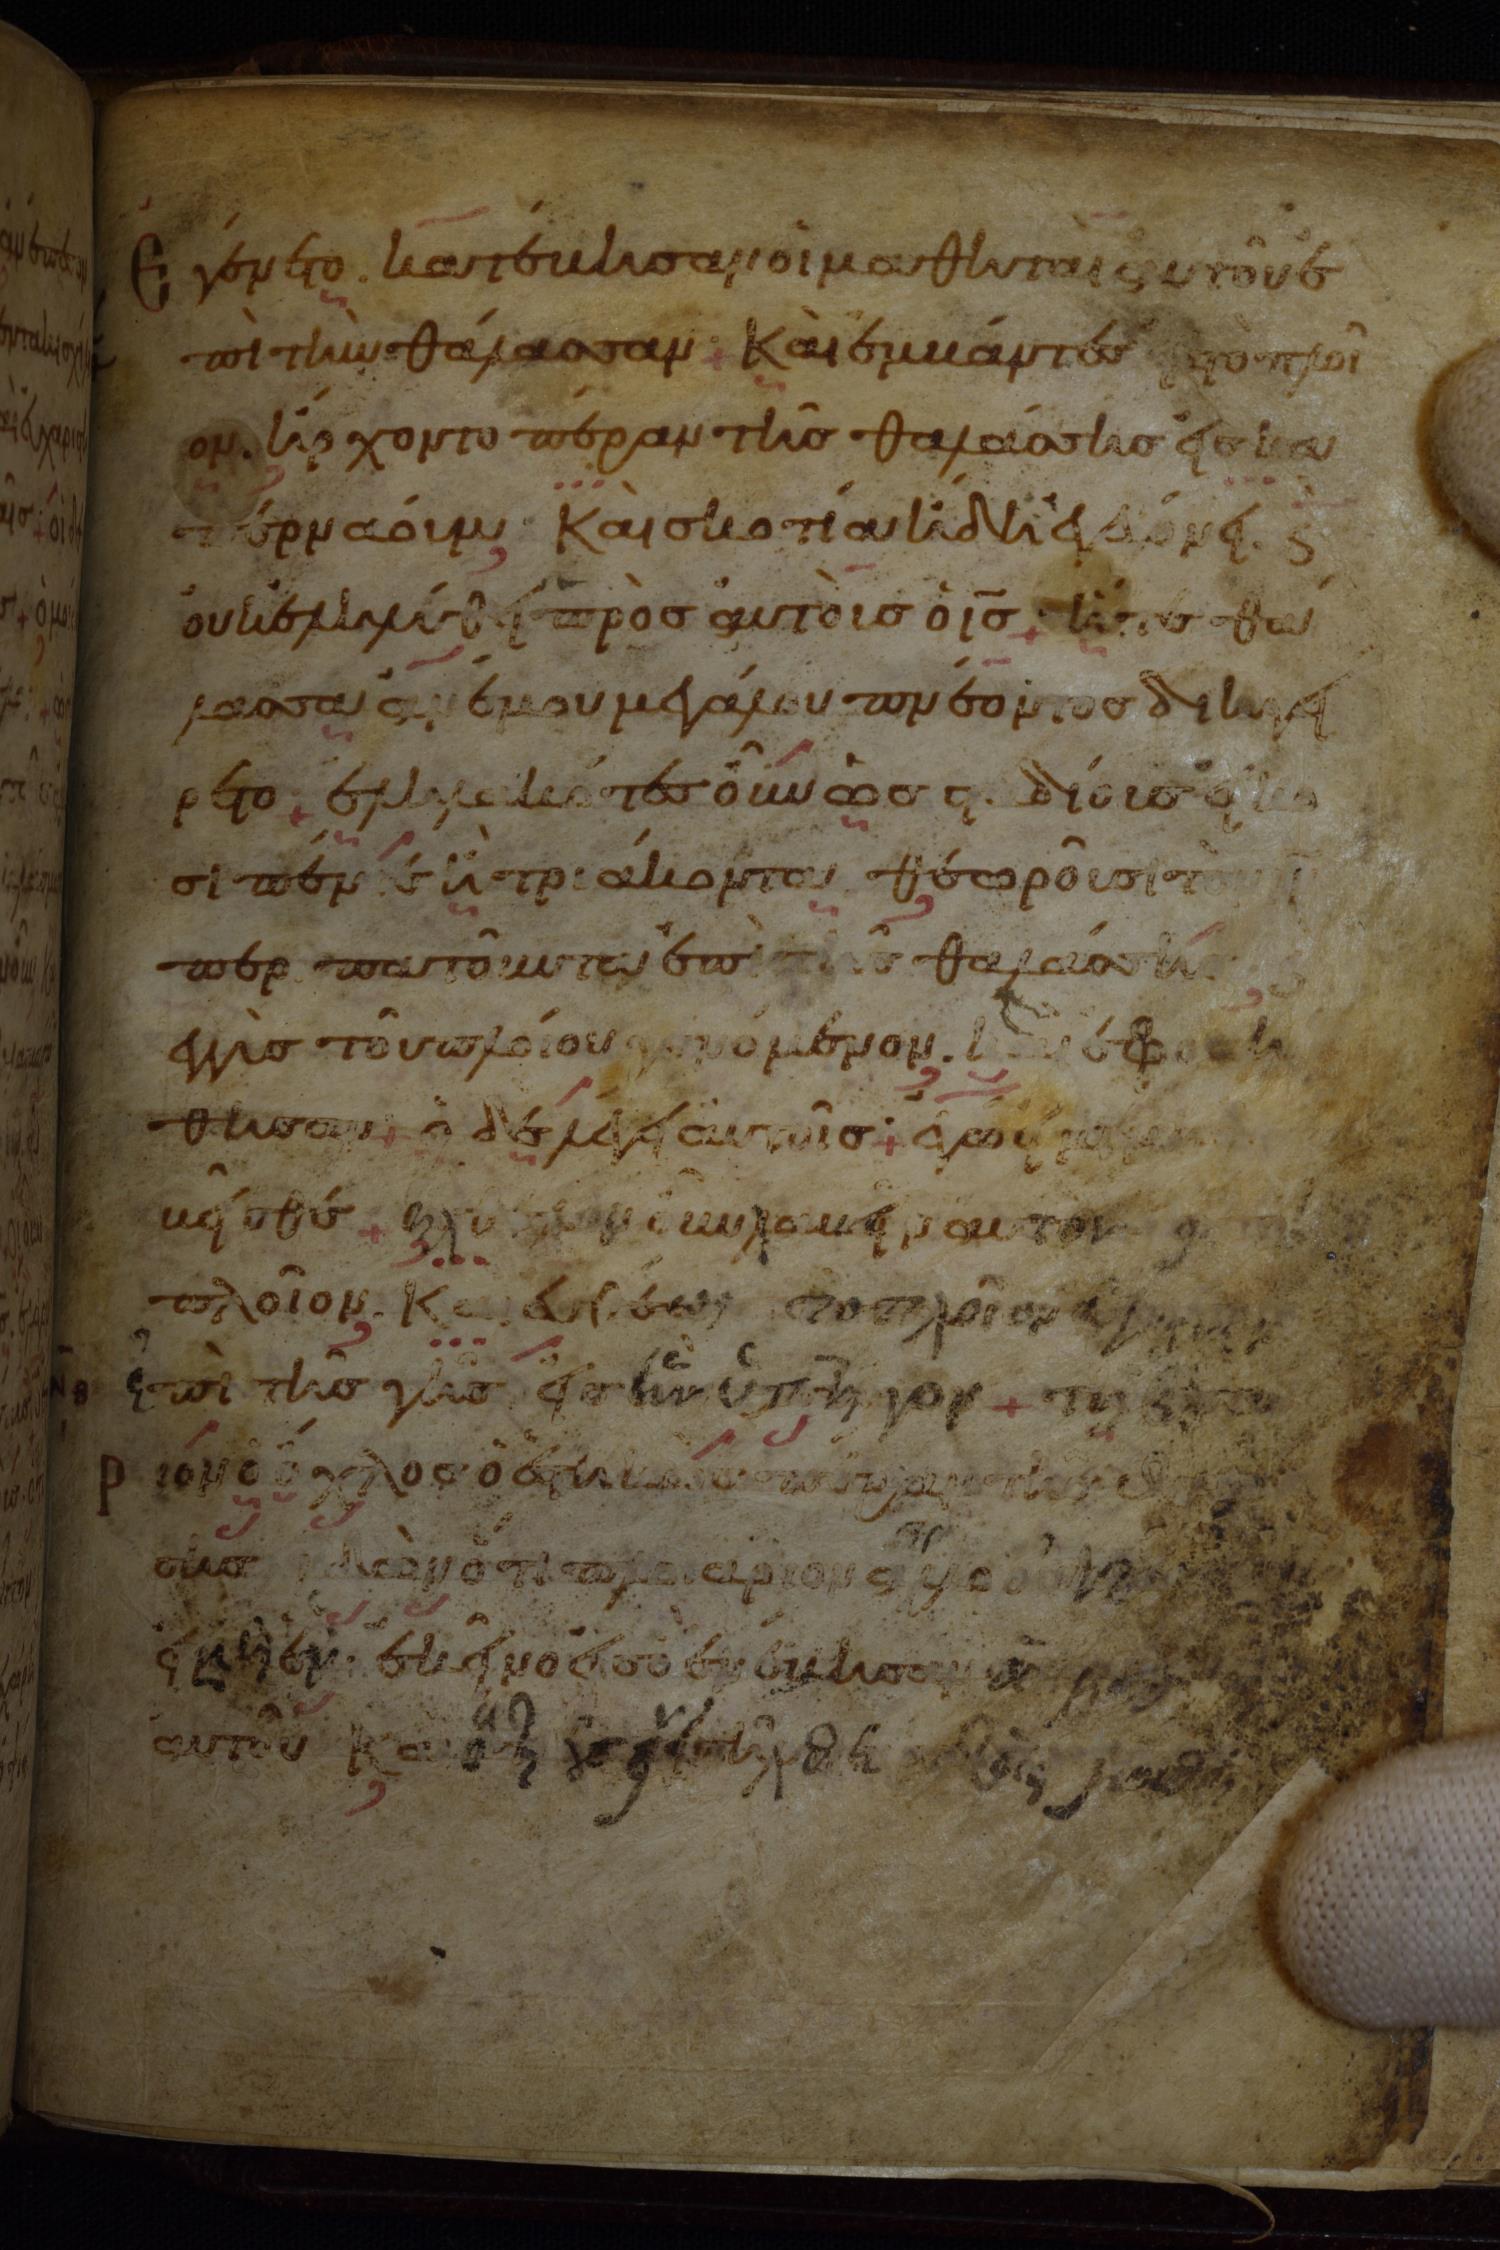 Ἐγένετο. κατέβησαν οἱ μαθηταὶ αὐτοῦ ἐ
πὶ τὴν θάλασσαν + Καὶ ἐμβάντες εἰς τὸ πλοῖ
ον. ἤρχοντο πέραν τῆς θαλάσσης εἰς κα
περναούμ. Καὶ σκοτία ἤδη ἐγεγόνει. ϗ
οὐκ ἐληλύθει πρὸς αὐτοὺς ὁ ι̅ς̅ + ἥ τε θά
λασσα ἀνέμου μεγάλου πνέοντος διηγεί
ρετο + ἐληλακότες οὖν ὡς σταδίους εἴκο
σι πέντε ἢ τριάκοντα θεωροῦσι τὸν ι̅ν̅
περιπατοῦντα ἐπὶ τῆς θαλάσσης ϗ
ἐγγὺς τοῦ πλοίου γινόμενον. καὶ ἐφοβή
θησαν + ὁ δὲ λέγει αὐτοῖς + ἐγώ εἰμι μὴ φο
βεῖσθε + ἤθελον οὖν λαβεῖν αὐτὸν εἰς τὸ
πλοῖον. Καὶ εὐθέως τὸ πλοῖον ἐγένετο
ἐπὶ τῆς γῆς εἰς ἣν ὑπῆγον + τῇ ἐπαύ
ριον ὁ ὄχλος ὁ ἑστηκὼς πέραν τῆς θαλάσ
σης ἰδὼν ὅτι πλοιάριον ἄλλο οὐκ ἦν
ἐκεῖ εἰ μὴ ἓν ἐκεῖνο εἰς ὃ ἐνέβησαν οἱ μαθηταὶ
αὐτοῦ Καὶ ὅτι οὐ συνεισῆλθε τοῖς μαθηταῖς